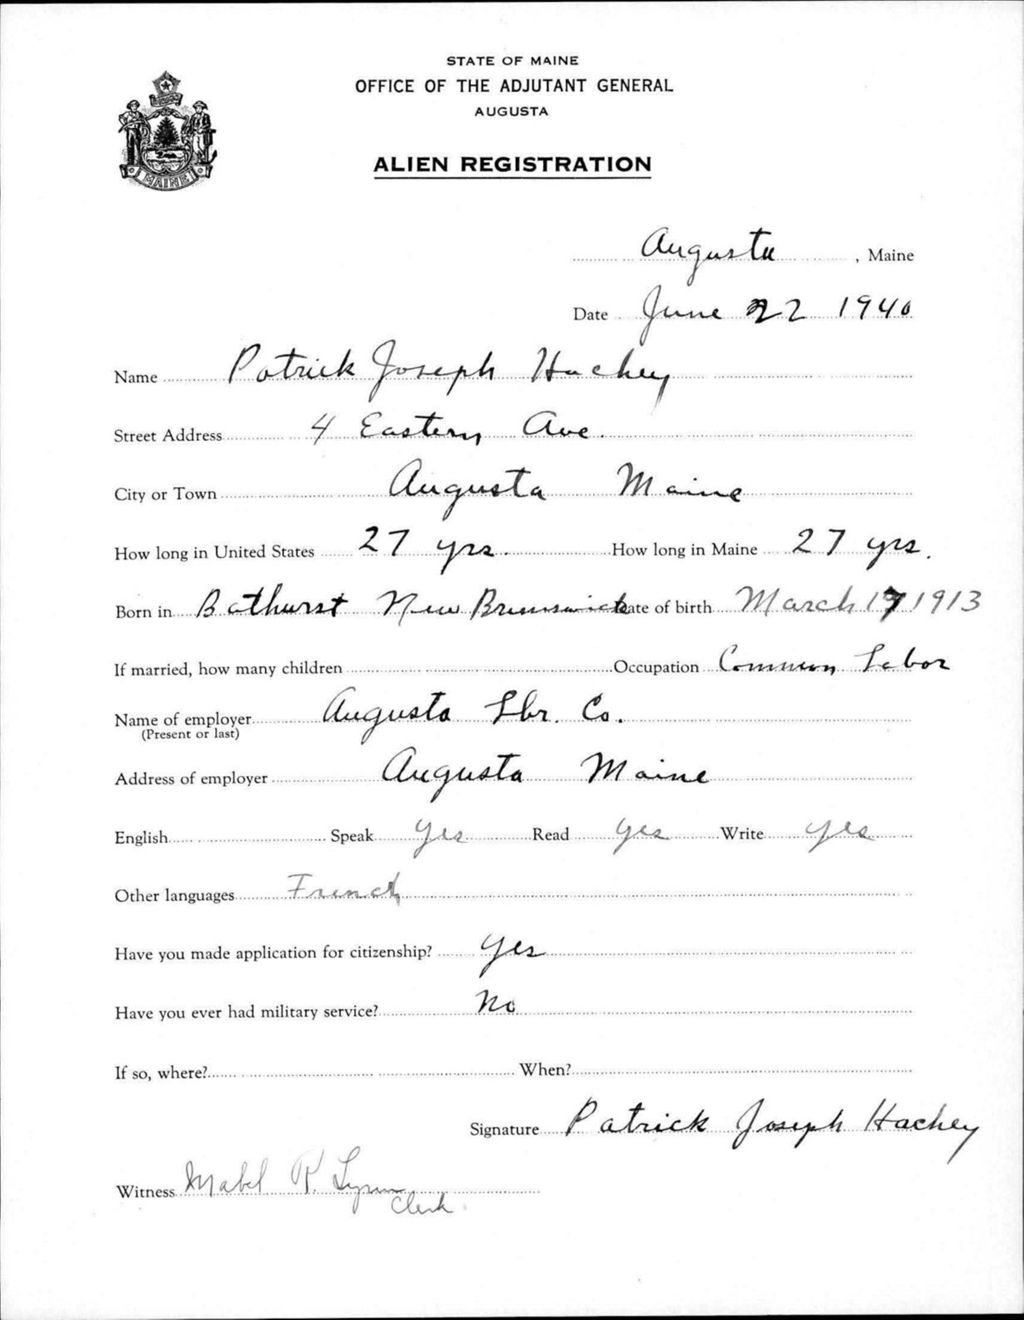 STATE OF MAINE
OFFICE OF THE ADJUTANT GENERAL
AUGUSTA
ALIEN REGISTRATION
MAINE
Augusta, Maine
Date June 22 1940
Name Patrick Joseph Hachey
Street Address 4 Eastern Ave.
City or Town Augusta Maine
How long in United States 27 yrs. How long in Maine 27 yrs.
Born in Bathurst New Brunswick Date of birth March 17 1913
If married, how many children Occupation Common Labor
Name of employer Augusta Lbr. Co.
(Present or last)
Address of employer Augusta Maine
English Speak Yes Read Yes Write Yes
Other languages French
Have you made application for citizenship? Yes
Have you ever had military service? No
If so, where? When?
Signature Patrick Joseph Hachey
Witness Mabel R.
Clerk